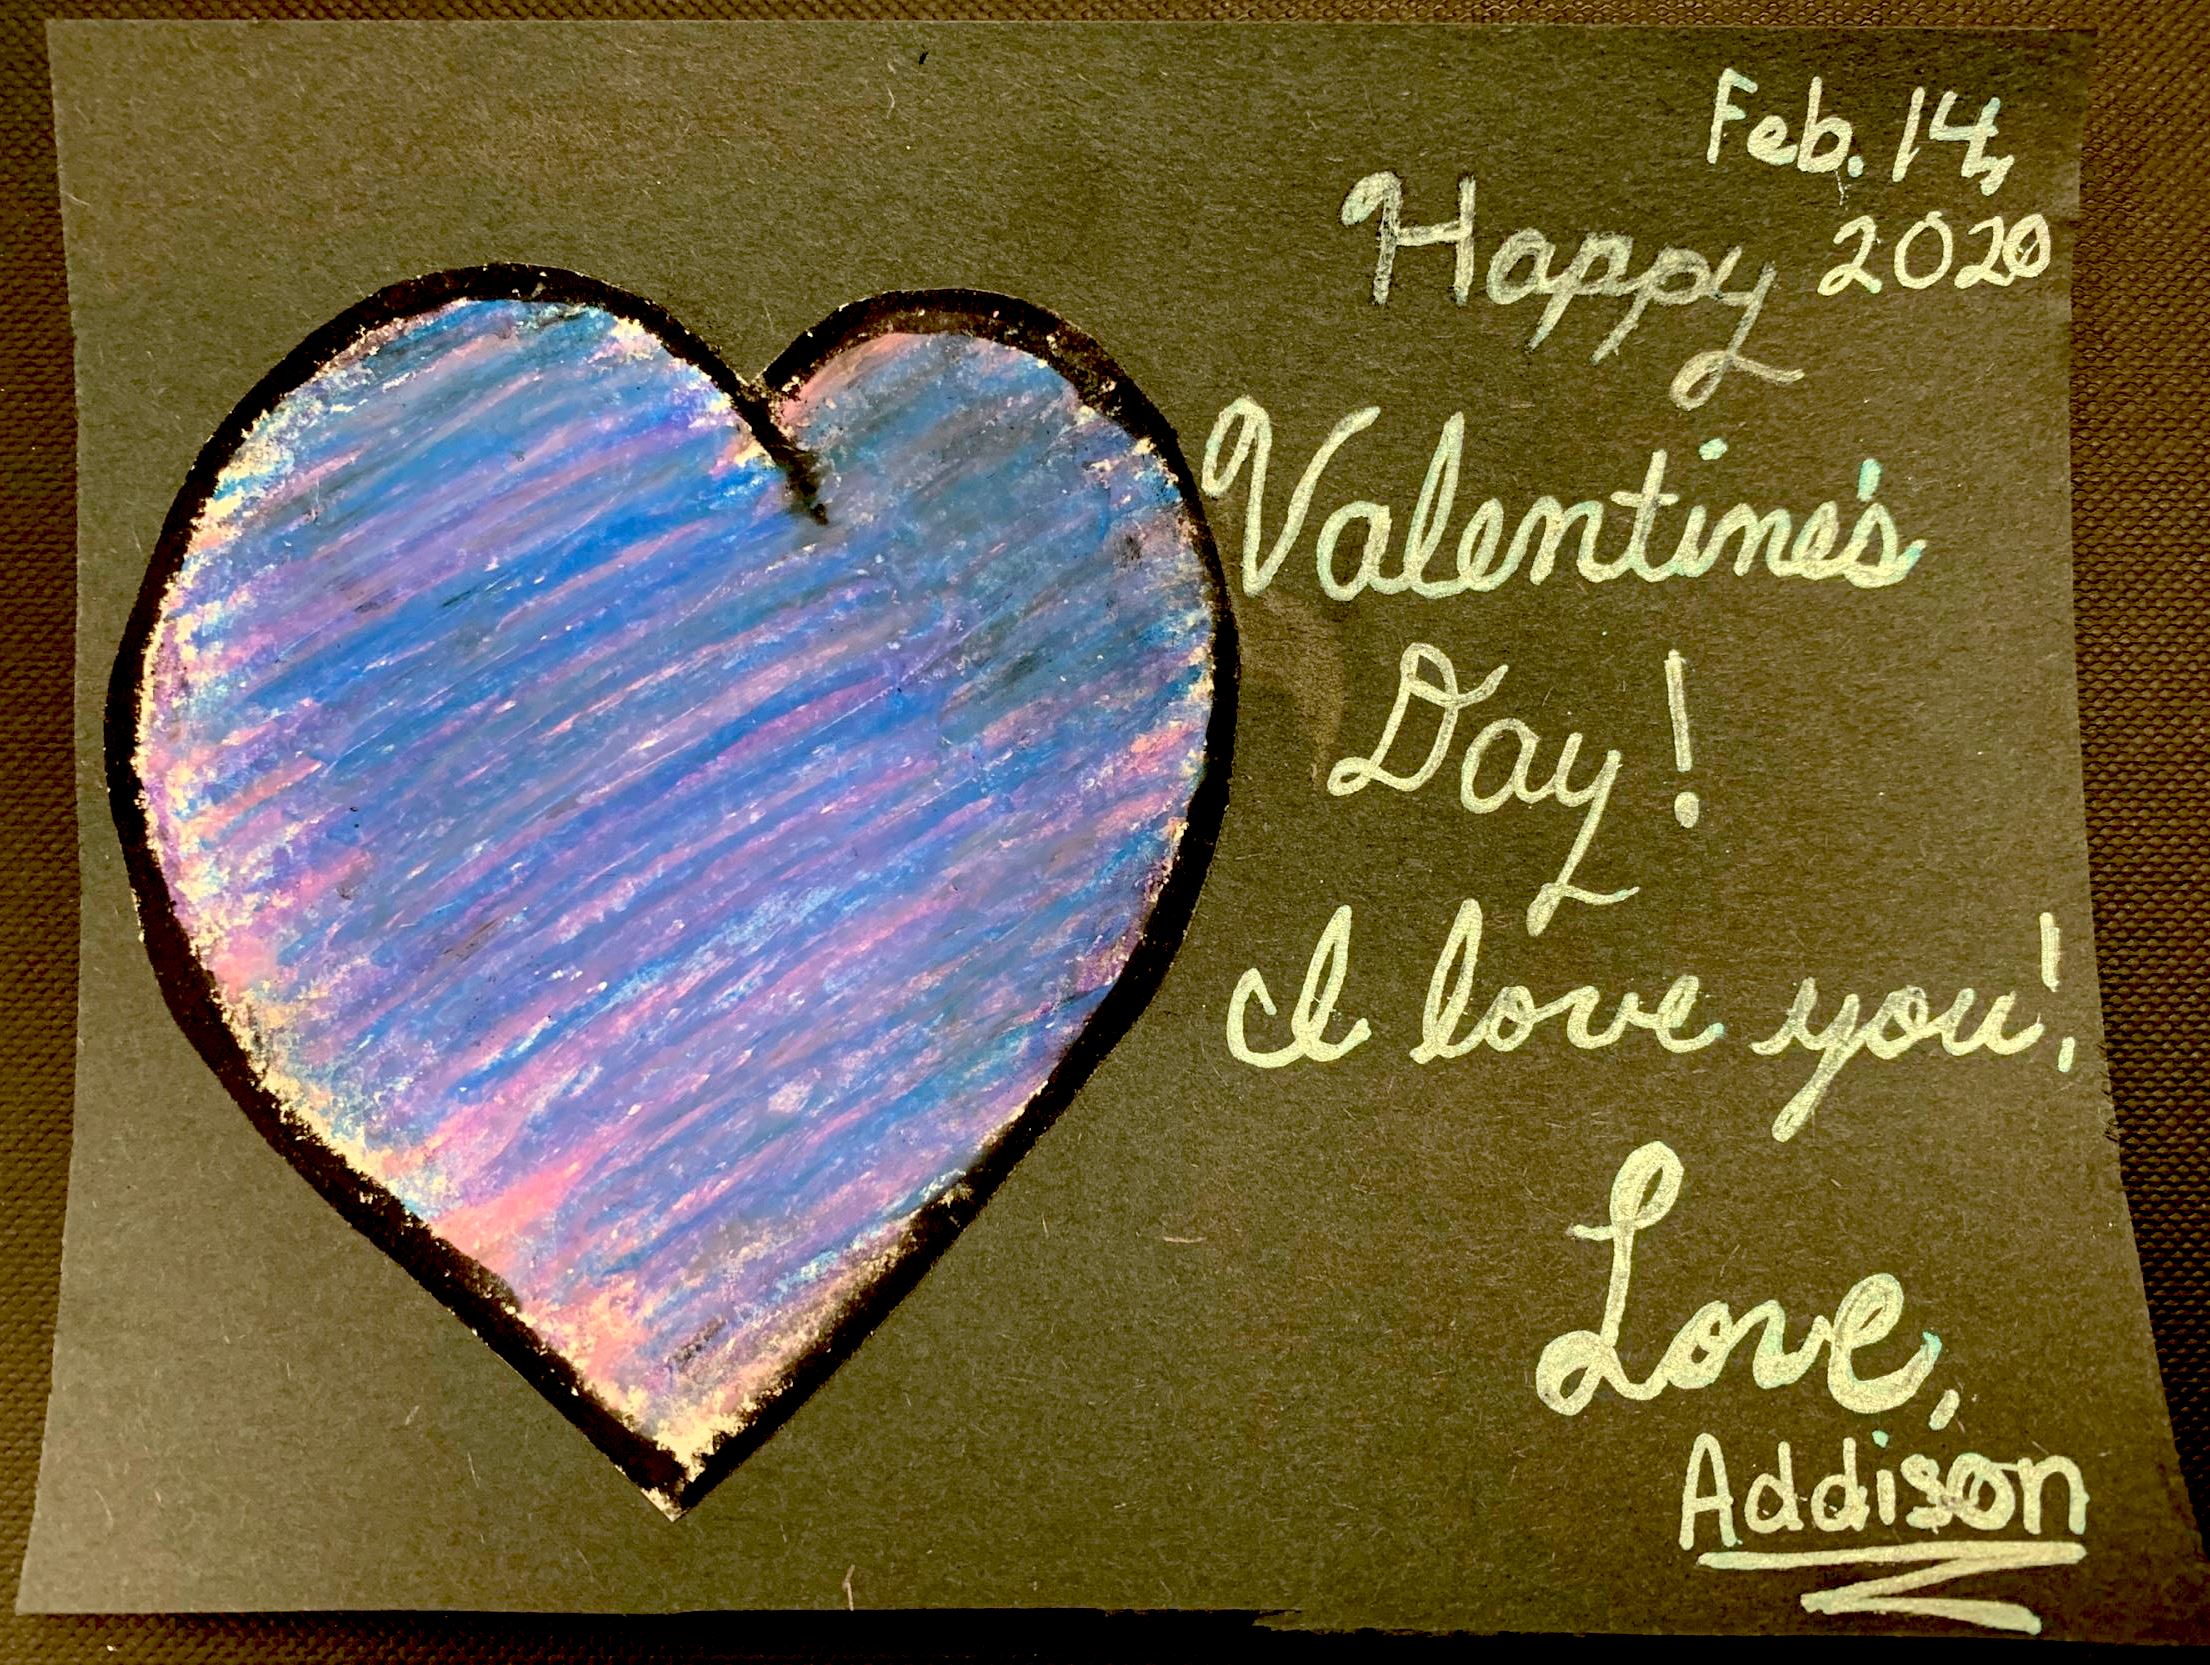 Feb. 14,
2020
Happy
Valentine's
Day!
I love you!
Love,
Addison